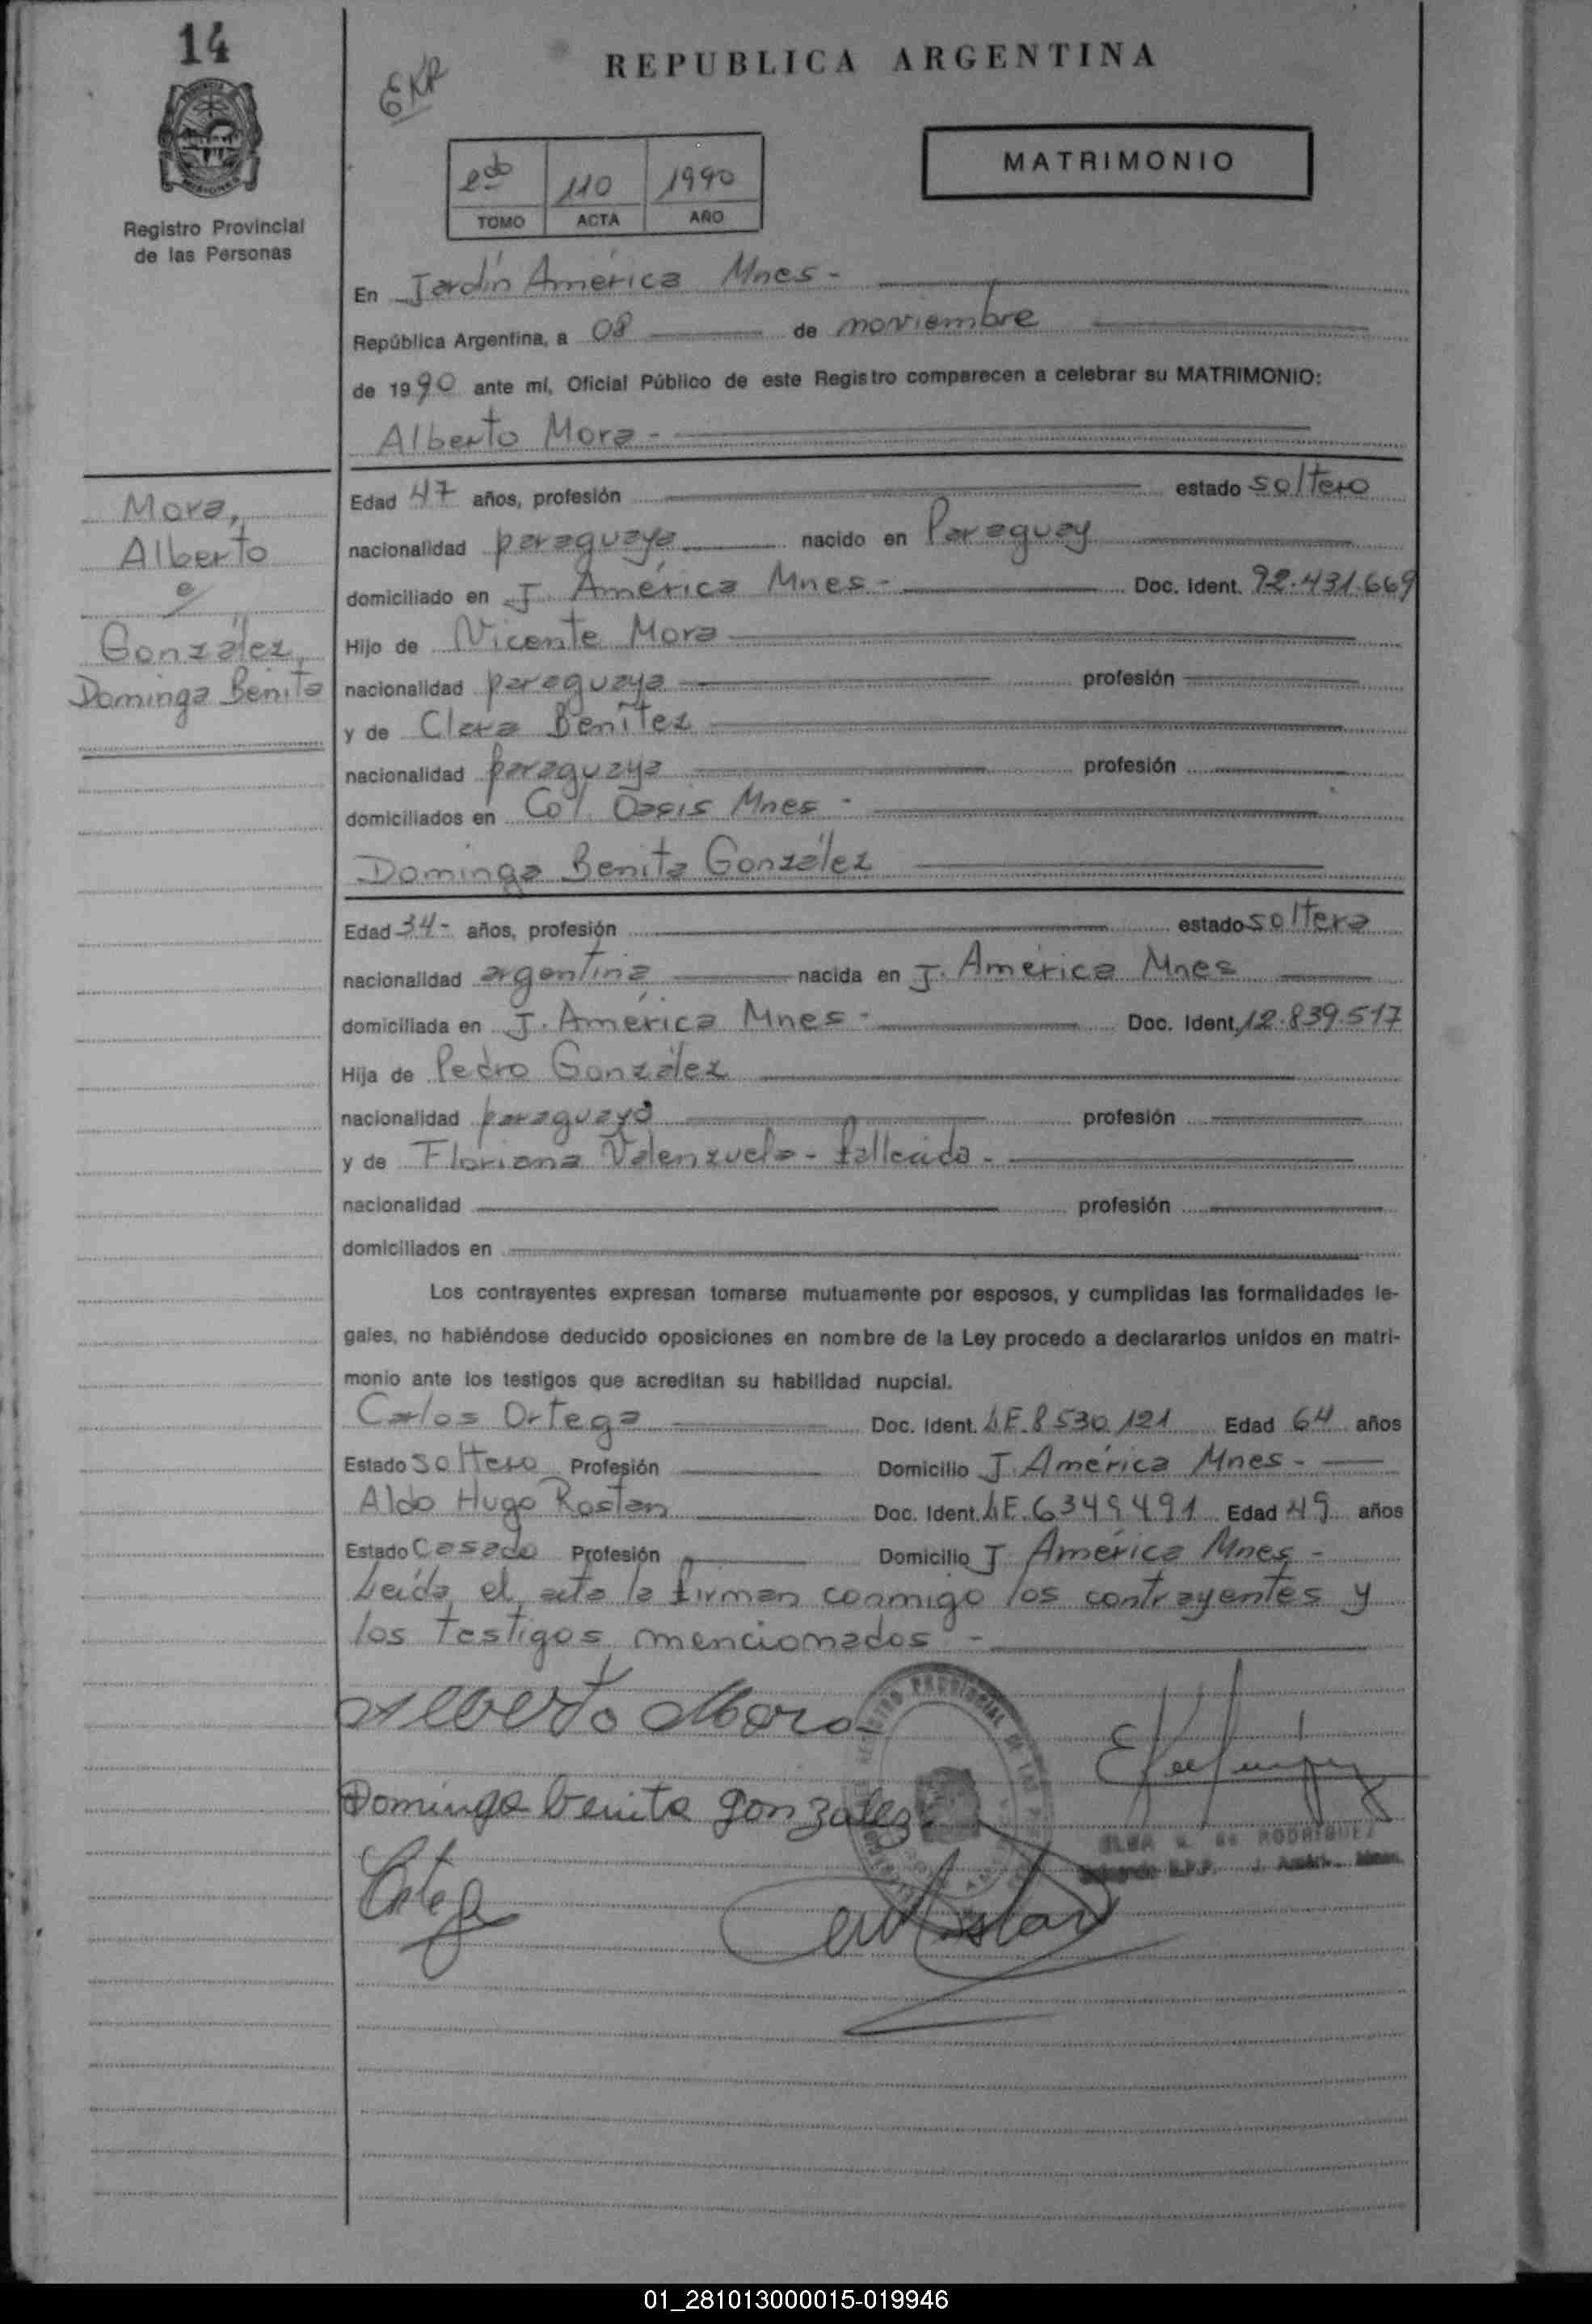 14
REPUBLICA ARGENTINA
EKR
MATRIMONIO
2do 110 1990
TOMO ACTA AÑO
MISIONES
Registro Provincial
de las Personas
En Jardín América Mnes-
República Argentina, a 08 de noviembre
de 1990 ante mí, Oficial Público de este Registro comparecen a celebrar su MATRIMONIO:
Alberto Mora-
Mora,
Alberto
e/
González,
Dominga Benita
Edad 47 años, profesión estado soltero
nacionalidad paraguaya nacido en Paraguay
domiciliado en J. América Mnes- Doc. Ident. 92.431.669
Hijo de Vicente Mora
nacionalidad paraguaya profesión
y de Clara Benítez
nacionalidad paraguaya profesión
domiciliados en Col. Oasis Mnes-
Dominga Benita González
Edad 34- años, profesión estado soltera
nacionalidad argentina nacida en J. América Mnes
domiciliada en J. América Mnes- Doc. Ident. 12.839.517
Hija de Pedro González
nacionalidad paraguayo profesión
y de Floriana Valenzuela - fallecida-
nacionalidad profesión
domiciliados en
Los contrayentes expresan tomarse mutuamente por esposos, y cumplidas las formalidades le-
gales, no habiéndose deducido oposiciones en nombre de la Ley procedo a declararlos unidos en matri-
monio ante los testigos que acreditan su habilidad nupcial.
Carlos Ortega Doc. Ident. LE.8530.121 Edad 64 años
Estado soltero Profesión Domicilio J. América Mnes-
Aldo Hugo Rostan Doc. Ident. LE.6349491 Edad 49 años
Estado Casado Profesión Domicilio J. América Mnes-
Leída el acta la firman conmigo los contrayentes y
los testigos mencionados.-
Alberto Mora
Dominga benita gonzalez
de RODRIGUEZ
01_281013000015-019946